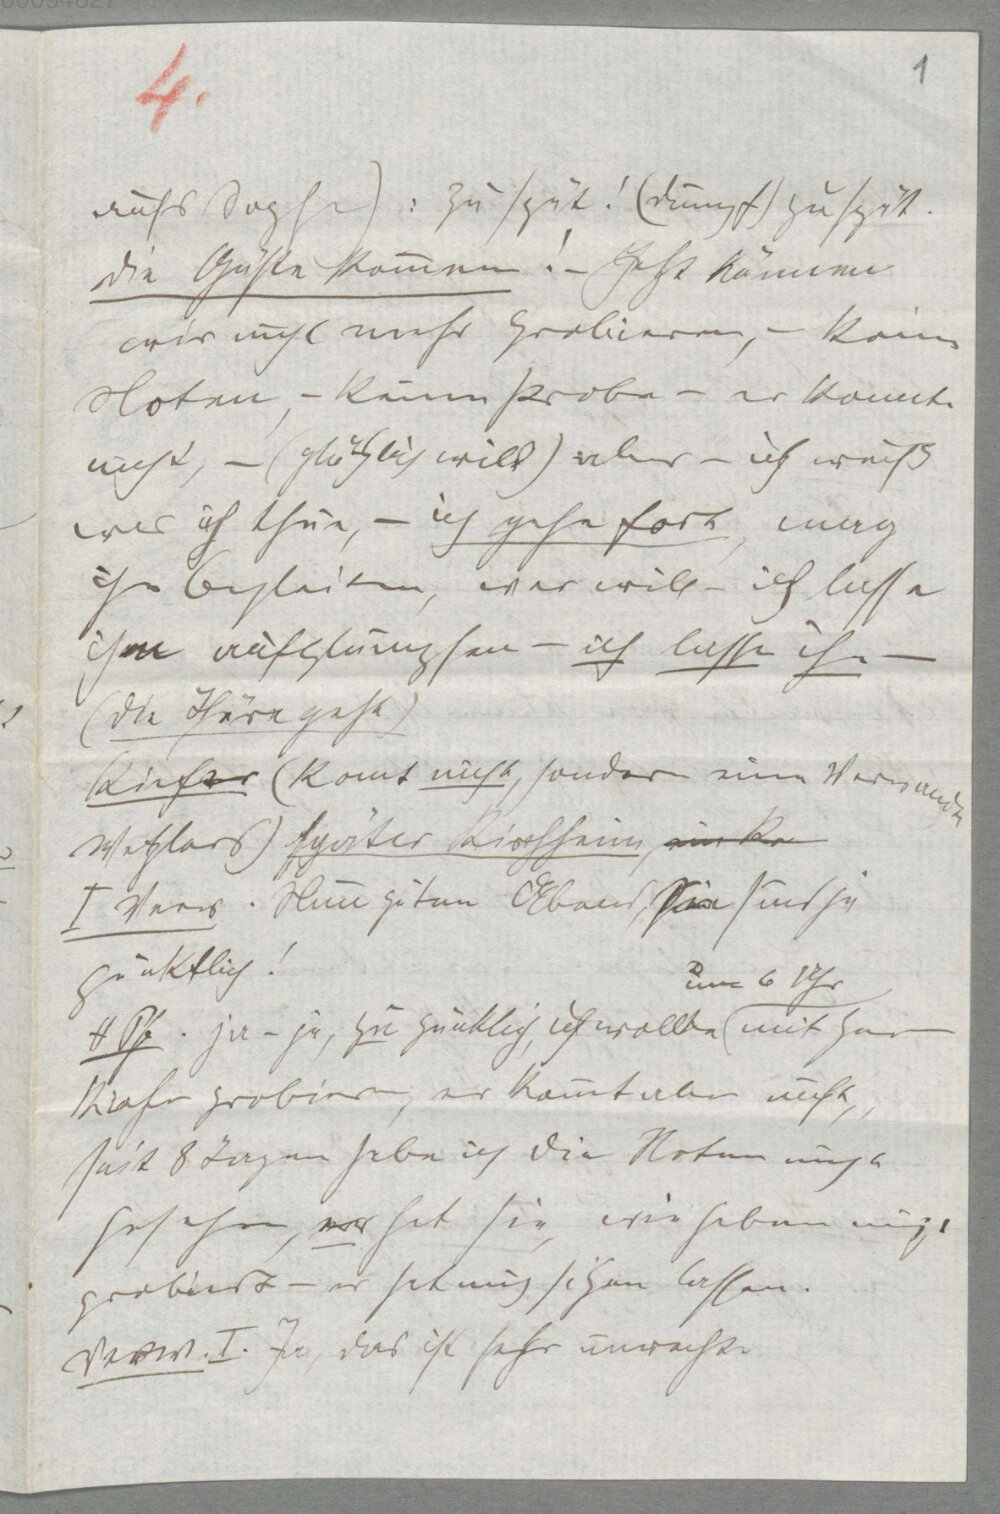 4.
1
aufs Sopha) : zu spät! (dumpf) zu spät.
die Gäste kom̅en! – Jetzt können
wir nicht mehr probieren, – keine
Noten, – keine Probe – er kommt
nicht, – (plötzlich wild) aber – ich weiß
was ich thue, – ich gehe fort, mag
ihn begleiten, wer will – ich lasse
ihn aufplumpsen – ich lasse ihn –
(die Thüre geht)
Kiefer (kom̅t nicht, sondern eine Verwandte
Wetzlars) später Kirchheim,
I Verw. Nun guten Abend, Sie sind ja
pünktlich!
um 6 Uhr
Pf. ja – ja, zu pünktlich, ich wollte mit Herrn
Kiefer probieren, er kom̅t aber nicht,
seit 8 Tagen habe ich die Noten nicht
gesehen, er hat sie, wir haben nicht
probiert – er hat mich sitzen lassen.
Verw. I. Ja, das ist sehr unrecht.